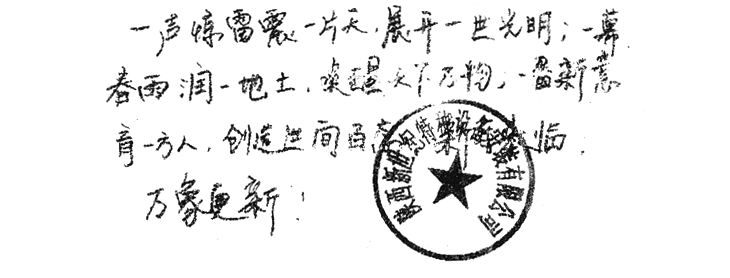 一声惊雷震一片天，展开一世光明；一幕
春雨润一地土，唤醒天下万物；一番新意
育一方人，创造世间百态 临，
万象更新！
陕西新世纪 科技有限公司